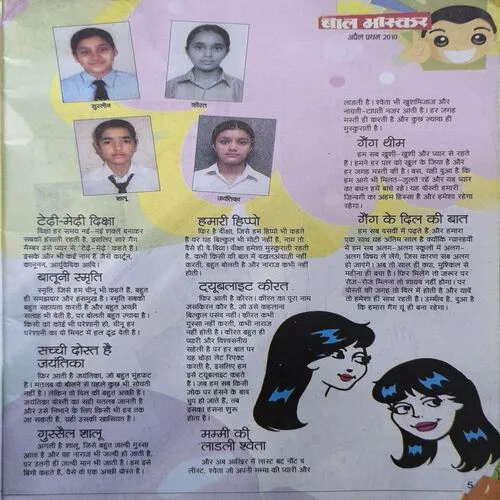 बाल भास्कर
अप्रैल प्रथम 2010
सुरलीन
कीरत
शालू
जयंतिका
टेढ़ी-मेढ़ी दिक्षा
दिक्षा हर समय नई-नई शक्लें बनाकर
सबको हंसाती रहती है, इसलिए सारे गैंग
मैम्बर उसे प्यार से 'टेढ़ी-मेढ़ी' कहते हैं।
इसके और भी कई नाम हैं जैसे कार्टून,
कानूनन, आयुर्वेदिक आदि।
बातूनी स्मृति
स्मृति, जिसे हम चीनू भी कहते हैं, बहुत
ही समझदार और हंसमुख है। स्मृति सबकी
बहुत सहायता करती है और बहुत अच्छी
सलाह भी देती है, पर बोलती बहुत ज्यादा है।
किसी को कोई भी परेशानी हो, चीनू हर
परेशानी का दो मिनट में हल ढूंढ देती है।
सच्ची दोस्त है
जयंतिका
फिर आती है जयंतिका, जो बहुत मुंहफट
है। मतलब वो बोलने से पहले कुछ भी सोचती
नहीं है। लेकिन वो दिल की बहुत अच्छी हैं।
जयंतिका दोस्ती का सही मतलब जानती है
और उसे निभाने के लिए किसी भी हद तक
जा सकती है, यही उसकी खासियत है।
गुस्सैल शालू
अगली है शालू, जिसे बहुत जल्दी गुस्सा
आता है और वह नाराज भी जल्दी हो जाती है,
पर उतनी ही जल्दी मान भी जाती है। हम इसे
बिंगो कहते हैं, वैसे वो एक अच्छी दोस्त है।
हमारी हिप्पो
फिर है दीक्षा, जिसे हम हिप्पो भी कहते
हैं पर यह बिल्कुल भी मोटी नहीं है, नाम तो
वैसे ही दे दिया। दीक्षा हमेशा मुस्कुराती रहती
है, कभी किसी की बात में दखलअंदाजी नहीं
करती, बहुत बोलती है और नाराज कभी नहीं
होती।
ट्यूबलाइट कीरत
फिर आती है कीरत। कीरत का पूरा नाम
जसकिरन कौर है, जो उसे कहलाना
बिल्कुल पसंद नहीं। कीरत कभी
गुस्सा नहीं करती, कभी नाराज
नहीं होती है। कीरत बहुत ही
प्यारी और विश्वसनीय
सहेली है पर हर बात पर
यह थोड़ा लेट रिएक्ट
करती है, इसलिए हम
उसे ट्यूबलाइट कहते
हैं। जब हम सब किसी
जोक पर हंसने के बाद
चुप हो जाते हैं, तब
इसका हंसना शुरू
होता है।
मम्मी की
लाडली श्वेता
और अब आखिर में लास्ट बट नॉट द
लीस्ट, श्वेता जो अपनी मम्मा की प्यारी और
लाडली है। श्वेता भी खुशमिजाज और
नाचती-टापती नजर आती है। हर जगह
मस्ती ही करती है और कुछ ज्यादा ही
मुस्कुराती है।
गैंग थीम
हम सब खुशी-खुशी और प्यार से रहते
हैं। हमने हर पल को खुल के जिया है और
हर जगह मस्ती की है। बस, यही दुआ है कि
हम आगे भी मिलते-जुलते रहें और यह प्यार
का बंधन में बांधे रहे। यह दोस्ती हमारी
जिन्दगी का अहम हिस्सा है और हमेशा रहेगा
रहेगा।
गैंग के दिल की बात
हम सब दसवीं में पढ़ते हैं और हमारा
एक साथ यह अंतिम साल है क्योंकि ग्यारहवीं
में हम सब अलग-अलग स्कूलों में अलग-
अलग विषय ले लेंगे, जिस कारण सब अलग
हो जाएंगे। अब तो साल ही क्या, मुश्किल से
महीना ही बचा है। फिर मिलेंगे तो जरूर पर
रोज-रोज मिलना तो शायद नहीं होगा। पर
दोस्ती की जगह तो दिल में होती है और यादें
तो हमेशा ही साथ रहती है। उम्मीद है, दुआ है
कि हमारा गैंग यूं ही बना रहेगा।
5